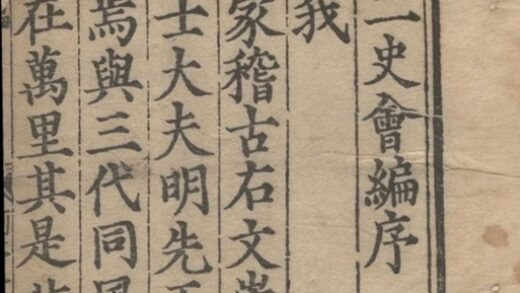 二史會編序
我
家稽古右文
士大夫明先
焉與三代同
在萬里其是